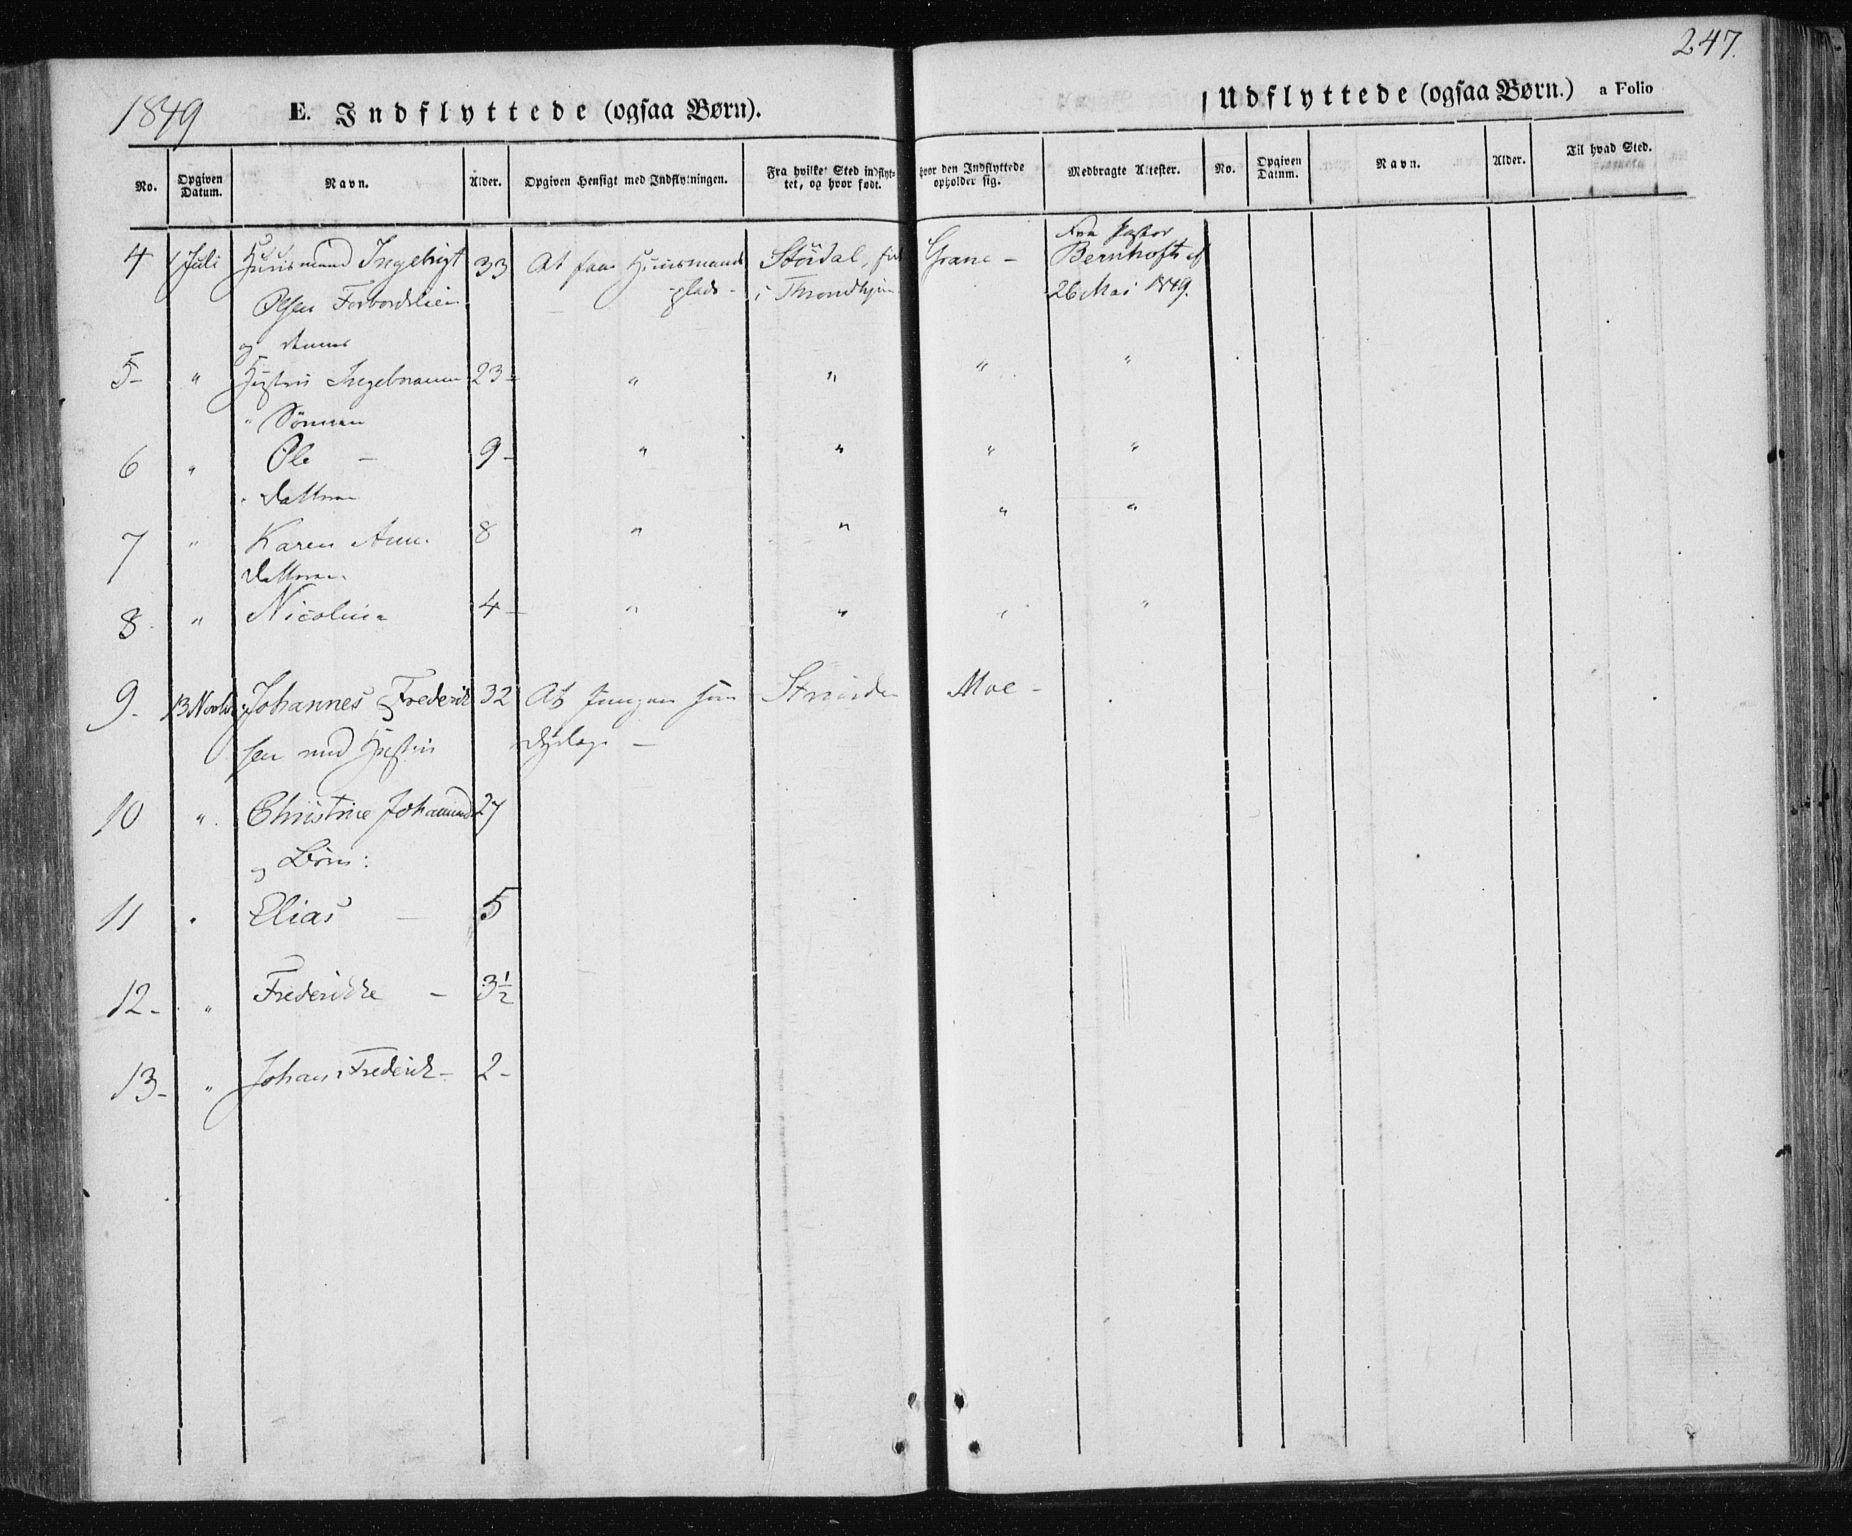 247.
1849
E. Indflyttede (ogsaa Børn).
Udflyttede (ogsaa Børn.) a Folio
No. Opgiven Datum. Navn. Alder. Opgiven Hensigt med Indflytningen. Fra hvilket Sted indflyttet, og hvor født. hvor den Indflyttede opholder sig. Medbragte Attester. No. Opgiven Datum. Navn. Alder. Til hvad Sted.
Fra Pastor
4 1 Juli Huusmand Ingebrigt 33 At faae Huusmands Stördal, født Grane - Bernhoft af
Olsen Forbordslien -plads - i Throndhjem 26 Mai 1849.
og dennes
5- " Hustru 23- " " " "
" Sönnen
6 " Ole - 9- " " " "
" Datteren
7 " Karen Ann. 8 " " " "
Datteren
8- " Nicoline 4- " " " "
9- 13 Novbr Johannes Frederik 32 At Strinden Moe -
sen med Hustru
10 " Christine 27
og Börn:
11 " Elias - 5
12- " Frederikke - 3½
13- " Johan Frederik- 2-